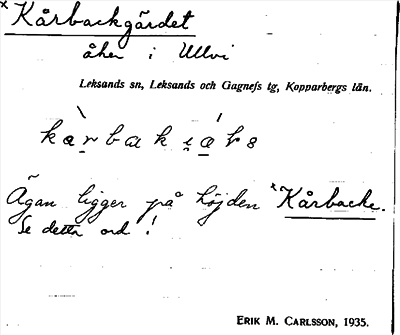 × Kårbackgärdet
åker i Ullvi
Leksands sn, Leksands och Gagnefs tg, Kopparbergs län.
Ägan ligger på höjden × Kårbacke.
Se detta ord!
ERIK M. CARLSSON, 1935.